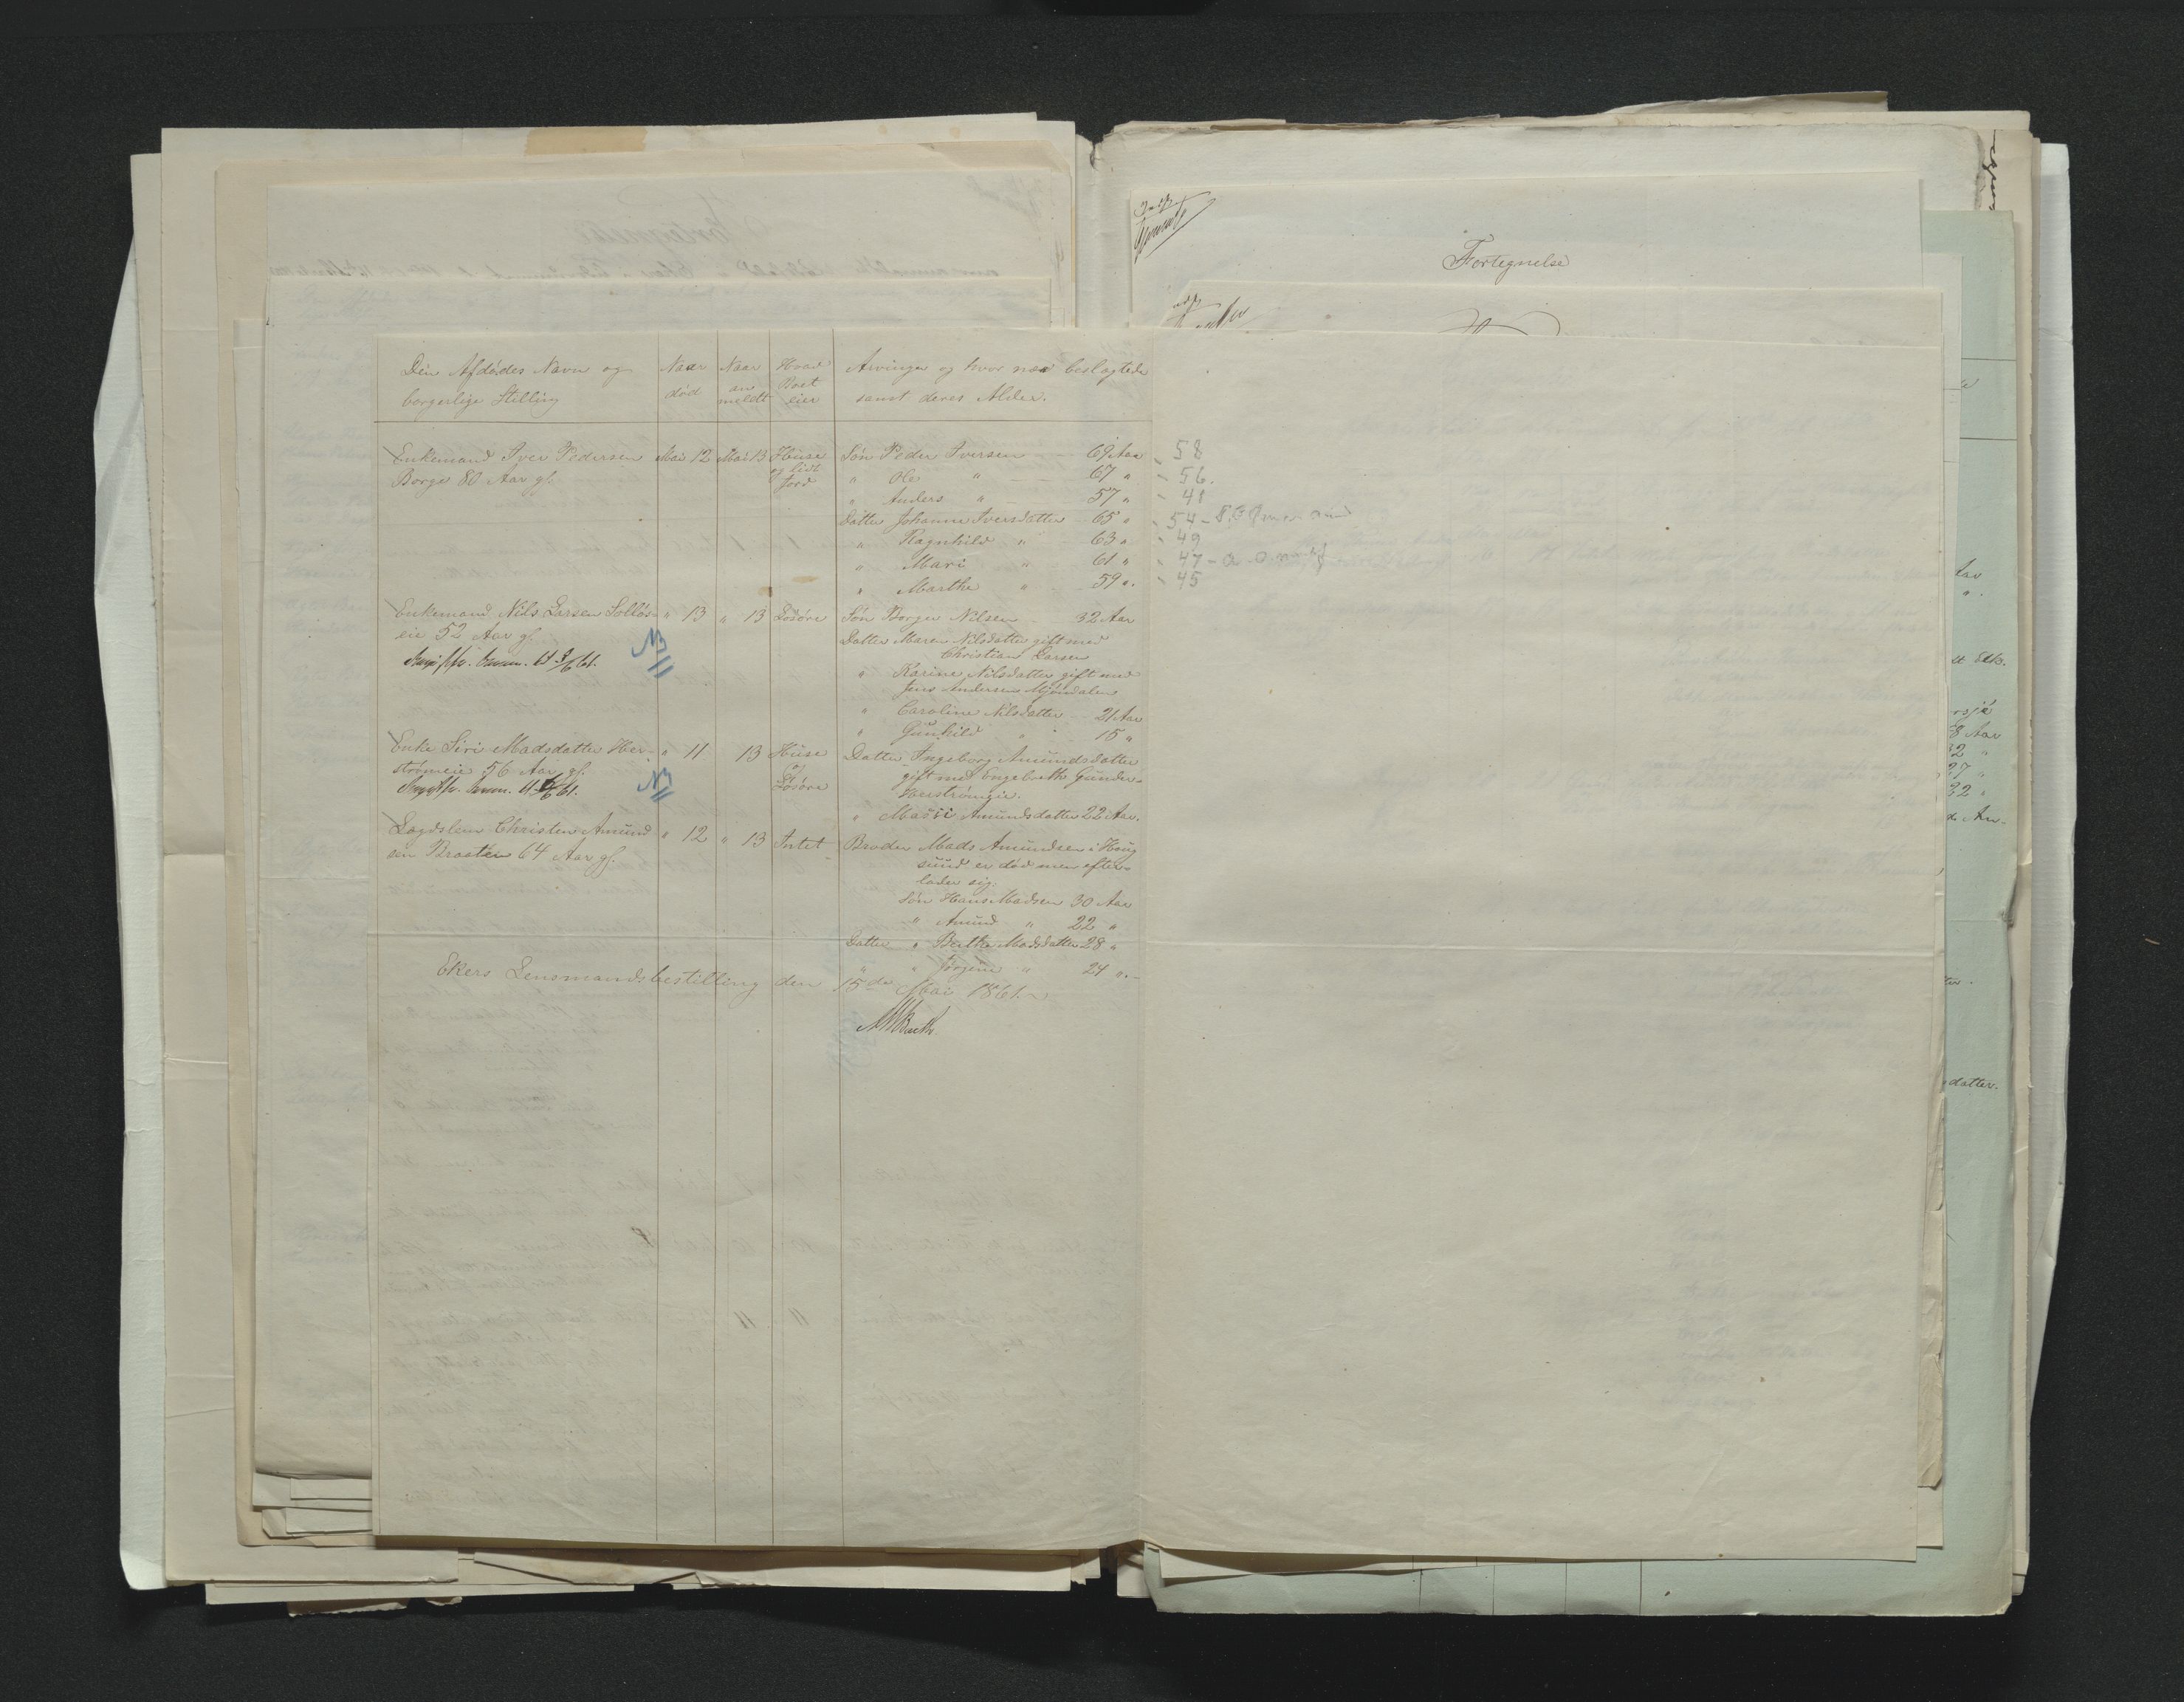 Den Afdødes Navn og
borgerlige Stilling
Naar
død
Naar
an
meldt
Hvad
Boet
eier
Arvinger og hvor nær beslægtede
samt deres Alder.
Enkemand Iver Pedersen Mai 12 Mai 13 Huse Søn Peder Iversen 69 Aar - 58
Borge 80 Aar gl. og lidt " Ole " 67 " - 56.
Jord " Anders " 57 " - 41
Datter Johanne Iversdatter 65 " - 54 -
" Ragnhild " 63 " - 49
" Mari " 61 " - 47 -
" Marthe " 59 ". - 45
Enkemand Nils Larsen Solløs- " 13 " 13 Løsøre Søn Borger Nilsen 32 Aar
eie 52 Aar gl. Datter Maren Nilsdatter gift med
Christian Larsen
" Karine Nilsdatter gift med
Jens Andersen Mjøndalen
" Caroline Nilsdatter 21 Aar
" Gunhild " 15 "
Enke Siri Madsdatter Her- " 11 13 Huse Datter Ingeborg Amundsdatter
strømeie 56 Aar gl. og gift med Engebreth Gunder-
Løsøre Herstrømeie.
" Amundsdatter 22 Aar.
Lægdslem Christen Amund " 12 " 13 Intet Broder Mads Amundsen i Houg
sen Braaten 64 Aar gl. sund er død men efter-
lader sig.
Søn Hans Madsen 30 Aar
" Amund " 22 "
Datter " Berthe Madsdatter 28 "
" " Jørgine " 24 ".-
Ekers Lensmandsbestilling den 15de Mai 1861.
Fortegnelse
datter.